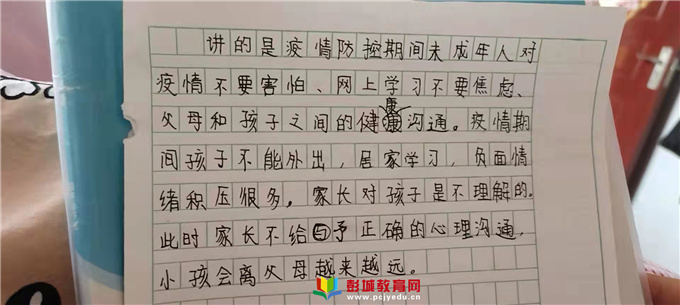 讲的是疫情防控期间未成年人对
疫情不要害怕、网上学习不要焦虑、
父母和孩子之间的健康沟通。疫情期
间孩子不能外出，居家学习，负面情
绪积压很多。家长对孩子是不理解的。
此时家长不给与予正确的心理沟通，
小孩会离父母越来越远。
彭城教育网
www.pcjyedu.cn